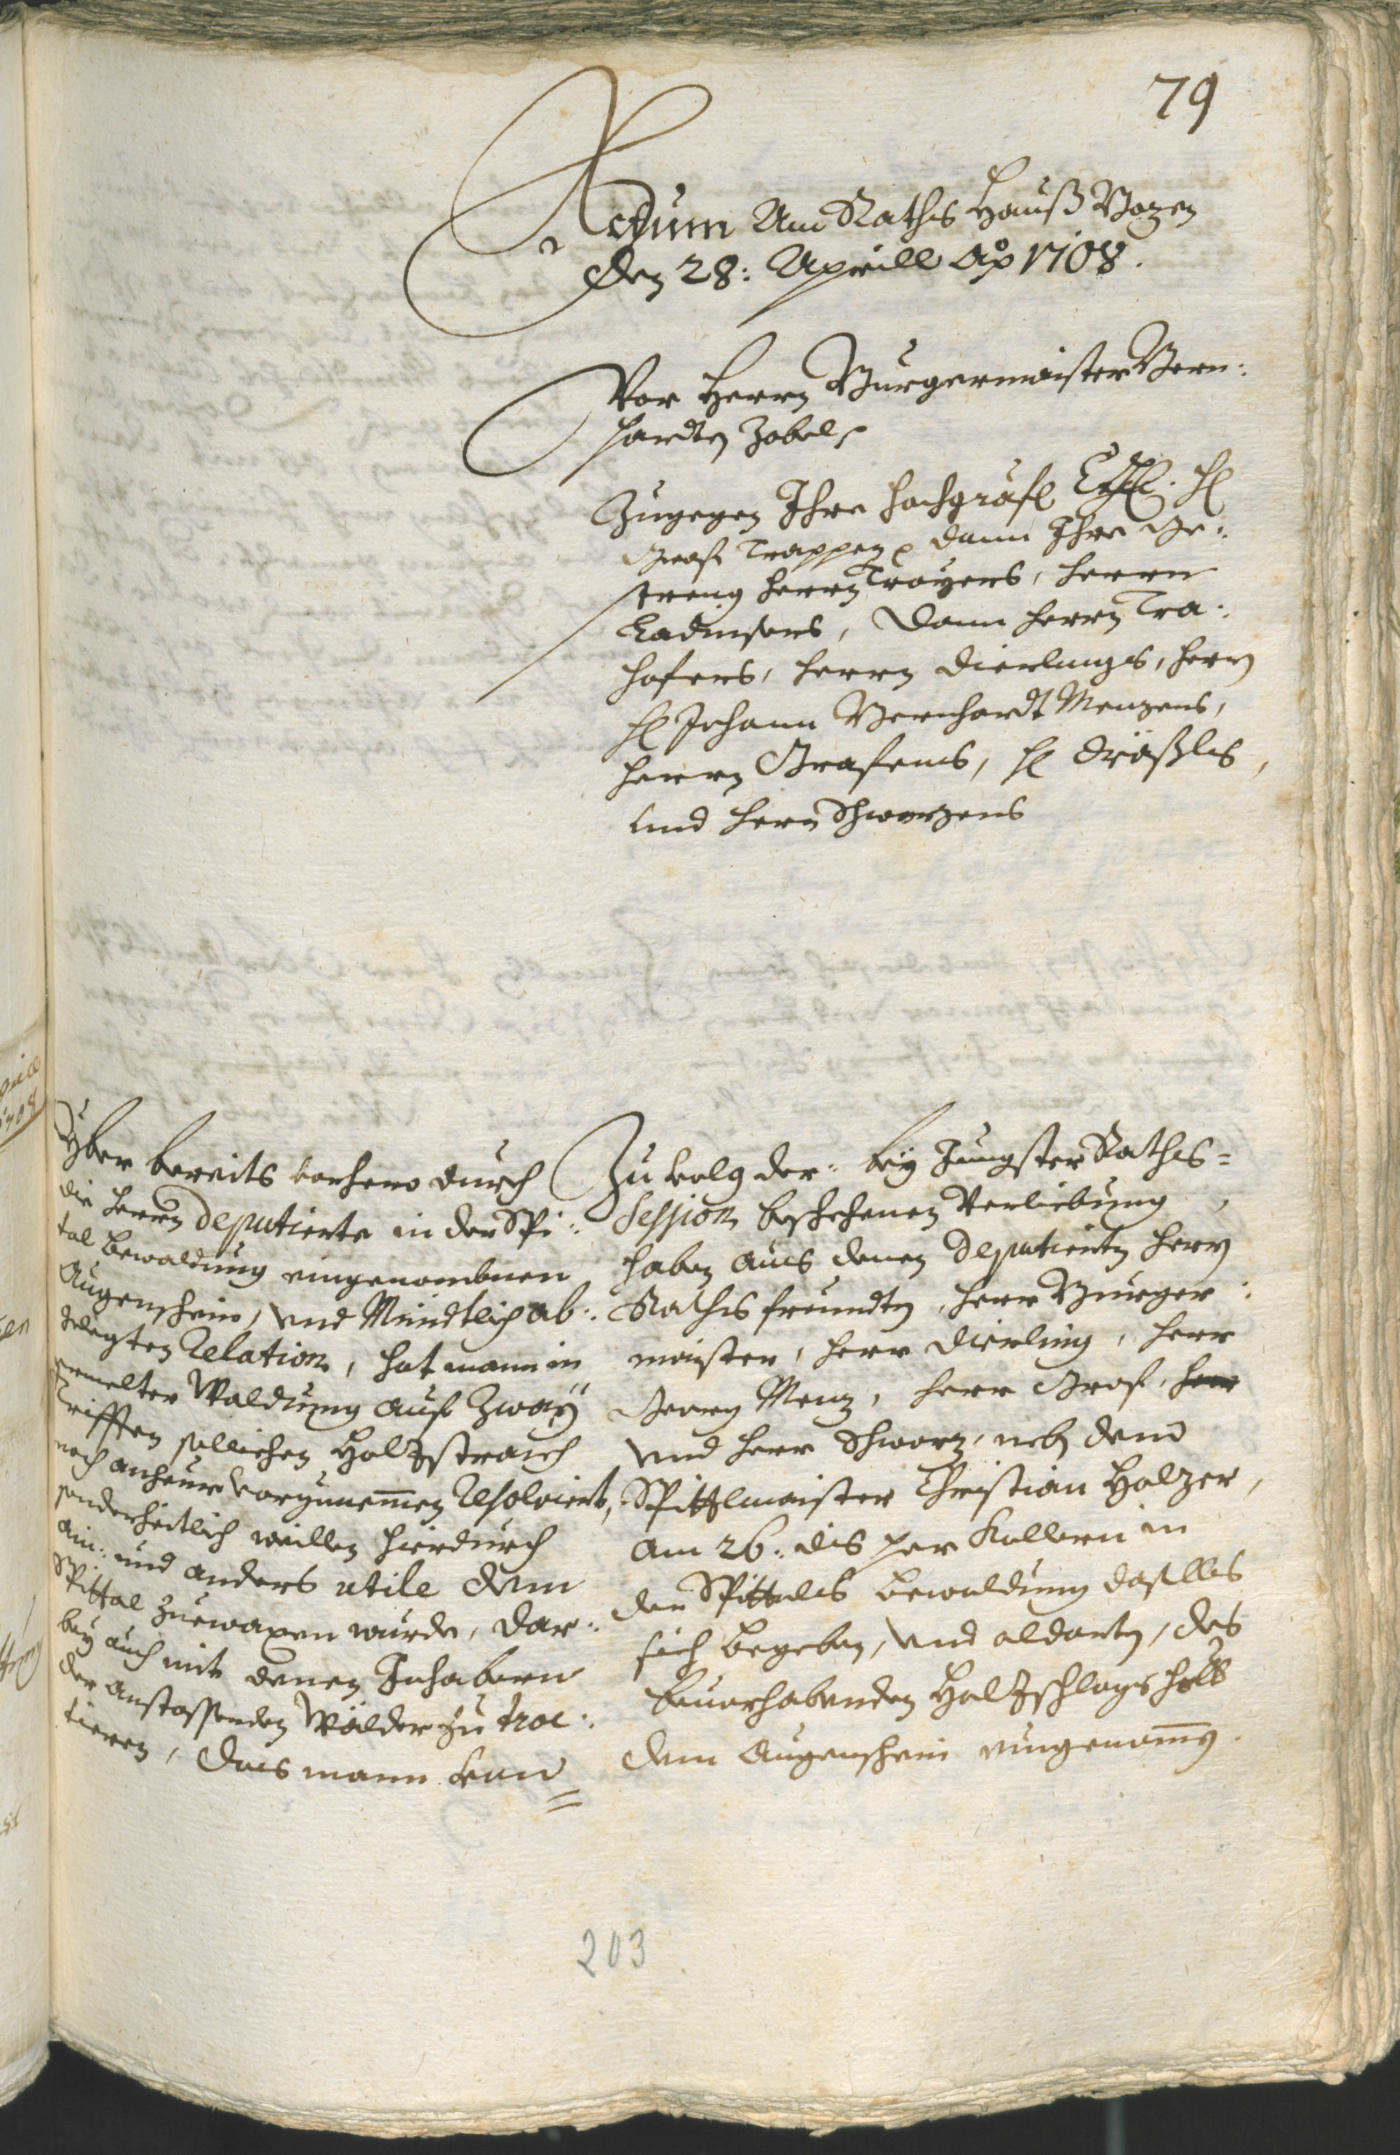 79
Actum Am Raths Hauß Bozen
den 28: Aprill Aō 1708.
Vor Herrn Burgermaister Bern:
hardten Zobel
Zugegen Ihro hochgräfl Exc: H
Graf Trappen dann Ihro Ge:
streng herrn Troyers, herrn
Ladinsers, dann herrn Tra:
hofers, herrn Dierlings, herrn
H Johann Bernhardt Menzens,
herrn Grafens, H
und herrn Schwarzens
Yber bereits vorhero durch
die herrn Deputierte in der Spi:
tal bewaldung eingenombnen
Augenschein, und Mündtlich ab:
gelegten Relation, hat mann in
gemelter Waldung auf Zway
Trifften sollichen Holzstraich
noch anheur vorzunemen Resolviert,
sonderheitlich weillen hierdurch
ain: und anders utile dem
Spittal zuewaxen wurde, dar:
bey auch mit denen Inhabern
der anstossenden Wälder zu trac:
tieren, das mann
Zu volg der: bey Jungster Raths=
Session beschehenen Verliebung,
haben aus denen Deputierten herrn
Raths freundten, herr Burger:
maister, herr Dierling, herr
Georg Menz, herr Graf, herr
und herr Schwarz, neben dem
Spittlmaister Christian Holzer,
am 26: dis per Kollern in
der Spittals bewaldung daselbs
sich begeben, und aldorten, des
beuorhabenden Holzschlags halb
den Augenschein eingenomen.
203